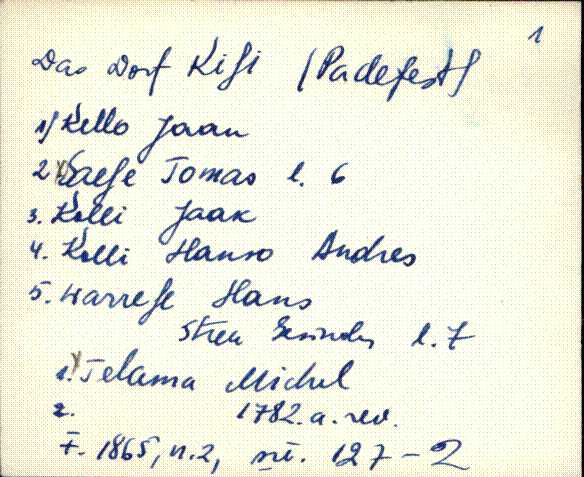 1
Das Dorf Kisi (Padefest)
1) Kello Jaan
2 Saese Tomas l. 6
3. Kolli Jaak
4. Kolli Hanso Andres
5. Warrese Hans
Streu Gesinder l. 7
1. Telama Michel
2. 1782. a. rev.
F. 1865, n. 2, nr. 127-2